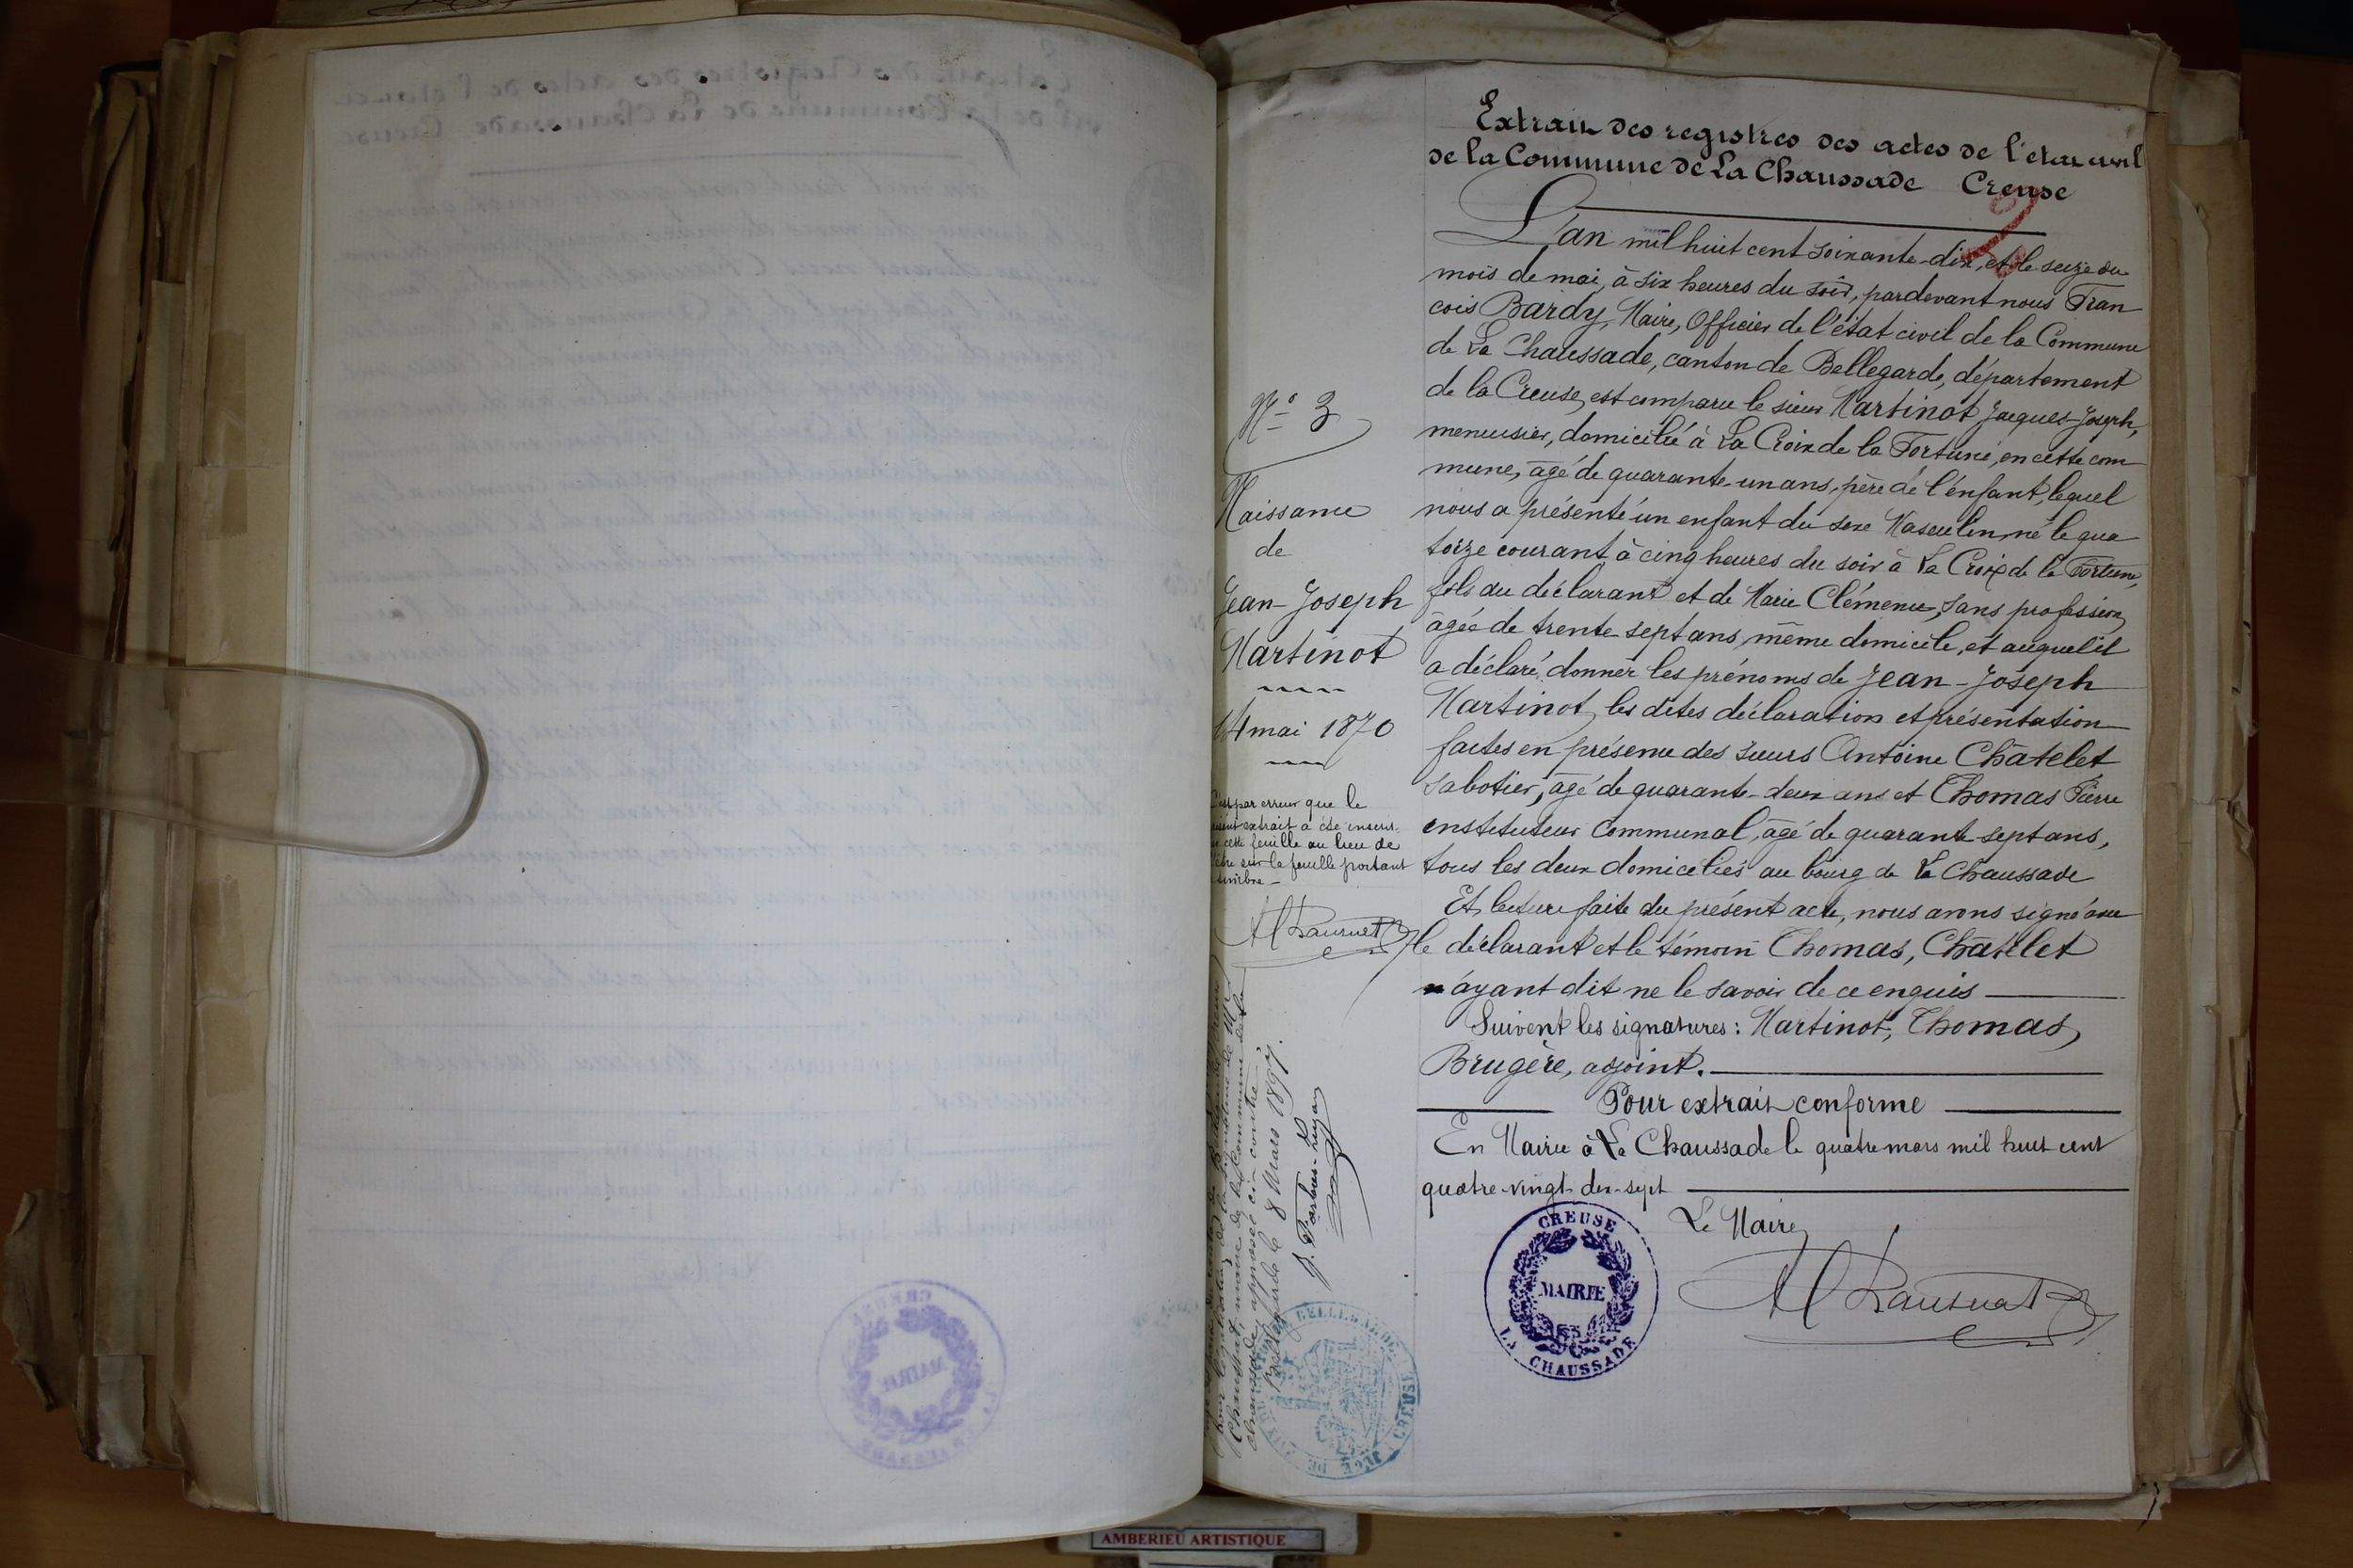 Extrait des registres des actes de l'état civil
de la Commune de La Chaussade Creuse
L'an mil huit cent soixante-dix, et le seize du
mois de mai, à six heures du soir, pardevant nous Fran
cois Bardy, Maire, Officier de l'état civil de la Commune
de La Chaussade, canton de Bellegarde, département
de la Creuse, est comparu le sieur Martinot Jacques-Joseph,
menuisier, domicilié à La Croix de la Fortune, en cette com
mune, âgé de quarante-un ans, père de l'enfant, lequel
nous a présenté un enfant du sexe Masculin, né le qua
torze courant à cinq heures du soir à La Croix de la Fortune,
fils du déclarant et de Marie Clémence, sans profession
âgée de trente sept ans, même domicile, et auquel il
a déclaré donner les prénoms de Jean-Joseph
Martinot, les dites déclaration et présentation
faites en présence des sieurs Antoine Châtelet
sabotier, âgé de quarante-deux ans et Thomas Pierre
instituteur communal, âgé de quarante sept ans,
tous les deux domiciliés au bourg de La Chaussade
Et lecture faite du présent acte, nous avons signé avec
le déclarant et le témoin Thomas, Châtelet
ayant dit ne le savoir de ce enquis
Suivent les signatures: Martinot, Thomas,
Brugère, adjoint.
Pour extrait conforme
En Mairie à La Chaussade le quatre mars mil huit cent
quatre-vingt-dix-sept
Le Maire
CREUSE
MAIRIE
LA CHAUSSADE
N° 3
Naissance
de
Jean-Joseph
Martinot
14 mai 1870
C'est par erreur que le
présent extrait a été inscrit
sur cette feuille au lieu de
l'être sur la feuille portant
timbre
de la signature de Mr
maire de la commune de la
Chaussade, apposée ci-contre
Bellegarde le 8 Mars 1897.
BELLEGARDE
CREUSE
JUGE DE PAIX
AMBERIEU ARTISTIQUE